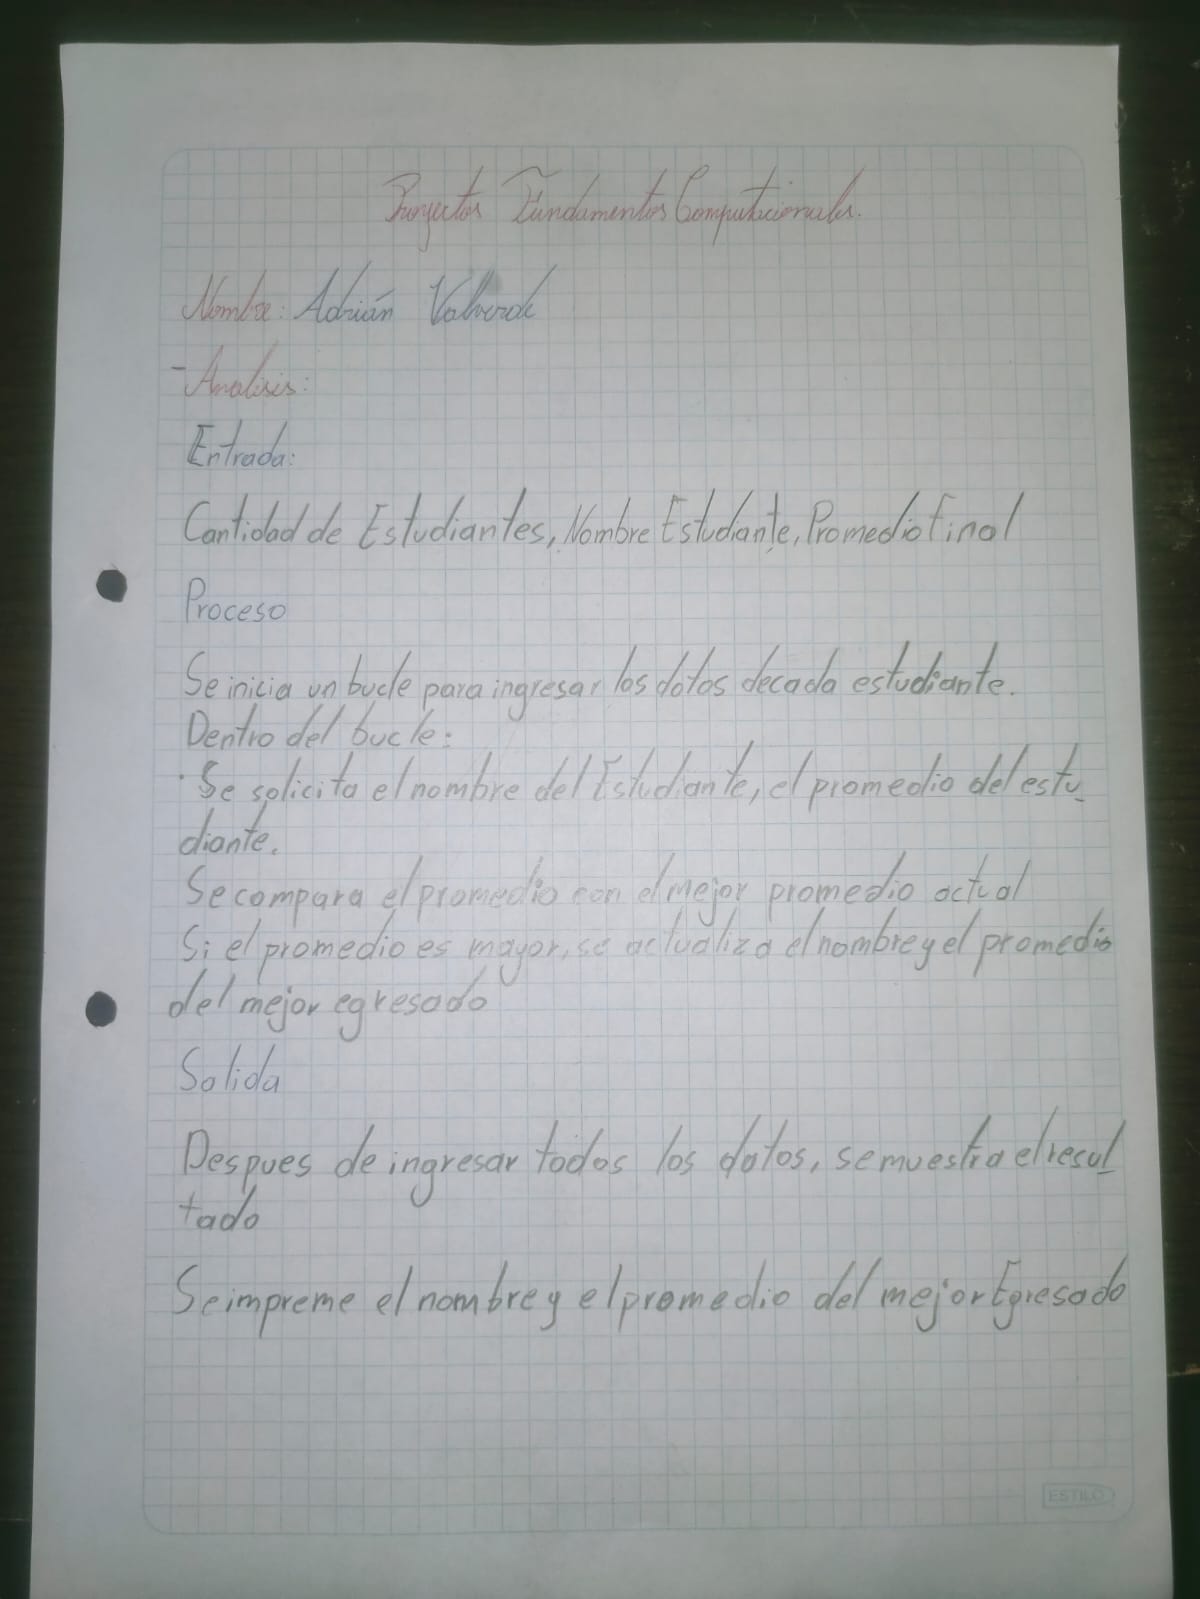 Proyectos Fundamentos Computacionales.
Nombre: Adrián Valverde
- Analisis:
Entrada:
Cantidad de Estudiantes, Nombre Estudiante, Promedio Final
Proceso
Se inicia un bucle para ingresar los datos de cada estudiante.
Dentro del bucle:
· Se solicita el nombre del Estudiante, el promedio del estu_
diante.
Se compara el promedio con el mejor promedio actual
Si el promedio es mayor, se actualiza el nombre y el promedio
del mejor egresado
Salida
Despues de ingresar todos los datos, se muestra el resul_
tado
Se impreme el nombre y el promedio del mejor Egresado
ESTILO